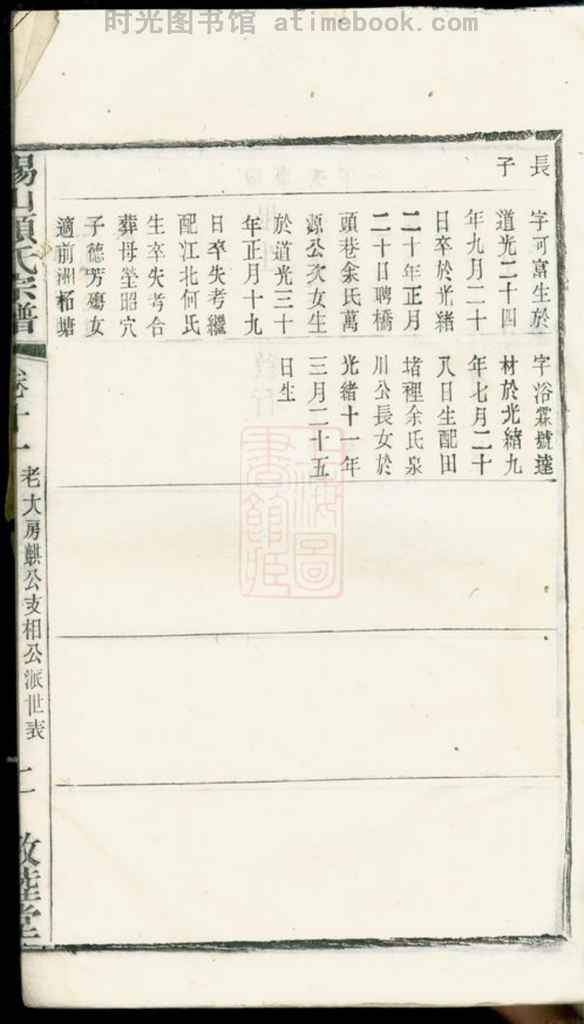 时光图书馆 atimebook.com
長
子
字可富生於
道光二十四
年九月二十
日卒於光緒
二十年正月
二十日聘橋
頭巷余氏萬
源公次女生
於道光三十
年正月十九
日卒失考繼
配江北何氏
生卒失考合
葬母塋昭穴
子德芳殤女
適前洲柘塘
字浴霖號達
材於光緒九
年七月二十
八日生配田
堵裡余氏泉
川公長女於
光緒十一年
三月二十五
日生
錫山項氏宗譜
卷十一
老大房麒公支相公派世表
二
敦睦堂
上海圖
書館